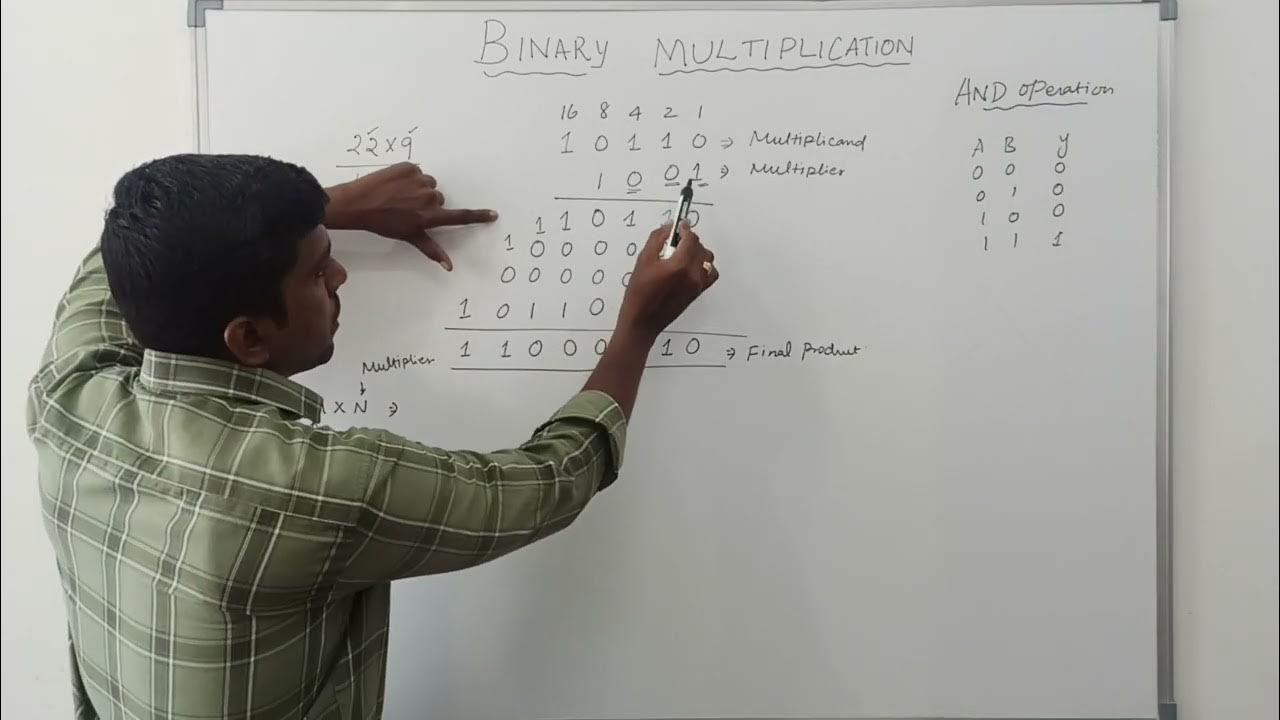 BINARY MULTIPLICATION
AND operation
16 8 4 2 1
22 x 9
1 0 1 1 0 → Multiplicand
1 0 0 1 → Multiplier
A B Y
0 0 0
0 1 0
1 0 0
1 1 1
1 1 0 1 1 0
1 0 0 0 0
0 0 0 0 0
1 0 1 1 0
1 1 0 0 0 1 0 → Final Product
Multiplier
↓
X N →